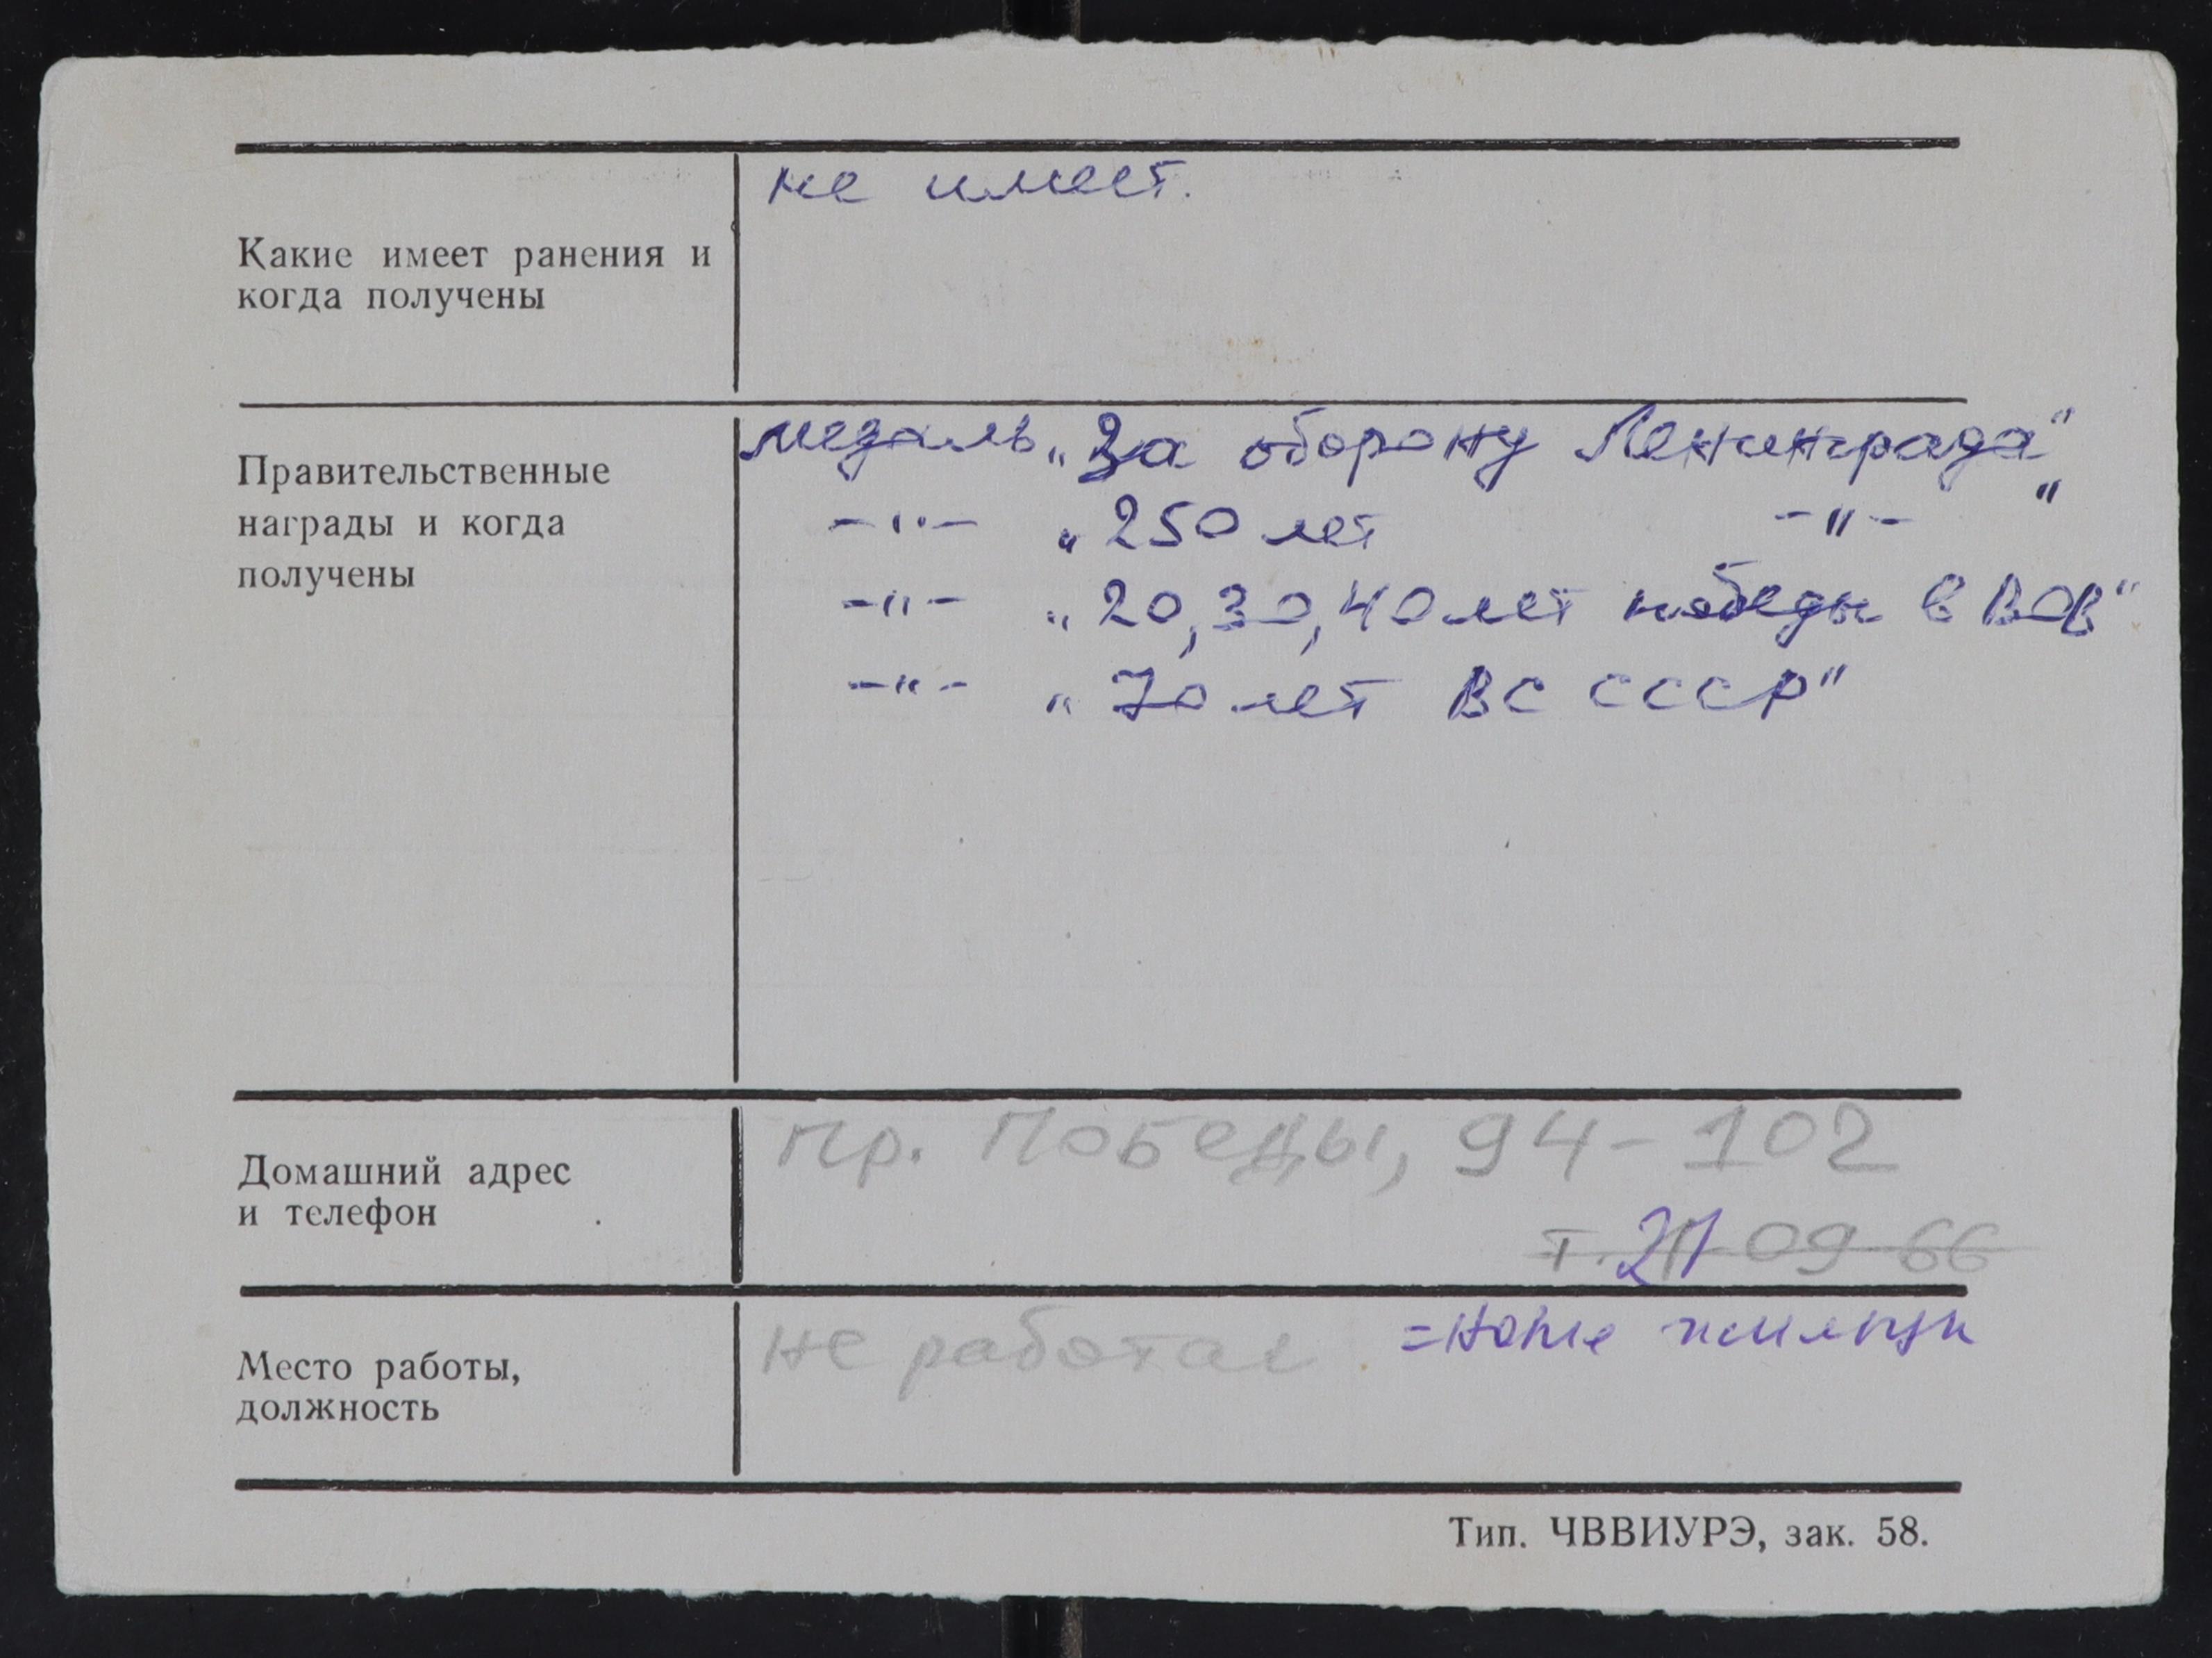 не имеет.
Какие имеет ранения и
когда получены
медаль „За оборону Ленинграда"
Правительственные
награды и когда
получены
-"- „250 лет -"- "
-"- „20, 30, 40 лет победы в ВОВ"
-"- „70 лет ВС СССР"
пр. Победы, 94-102
Домашний адрес
и телефон
т. 21 09-66
не работает
Место работы,
должность
Тип. ЧВВИУРЭ, зак. 58.